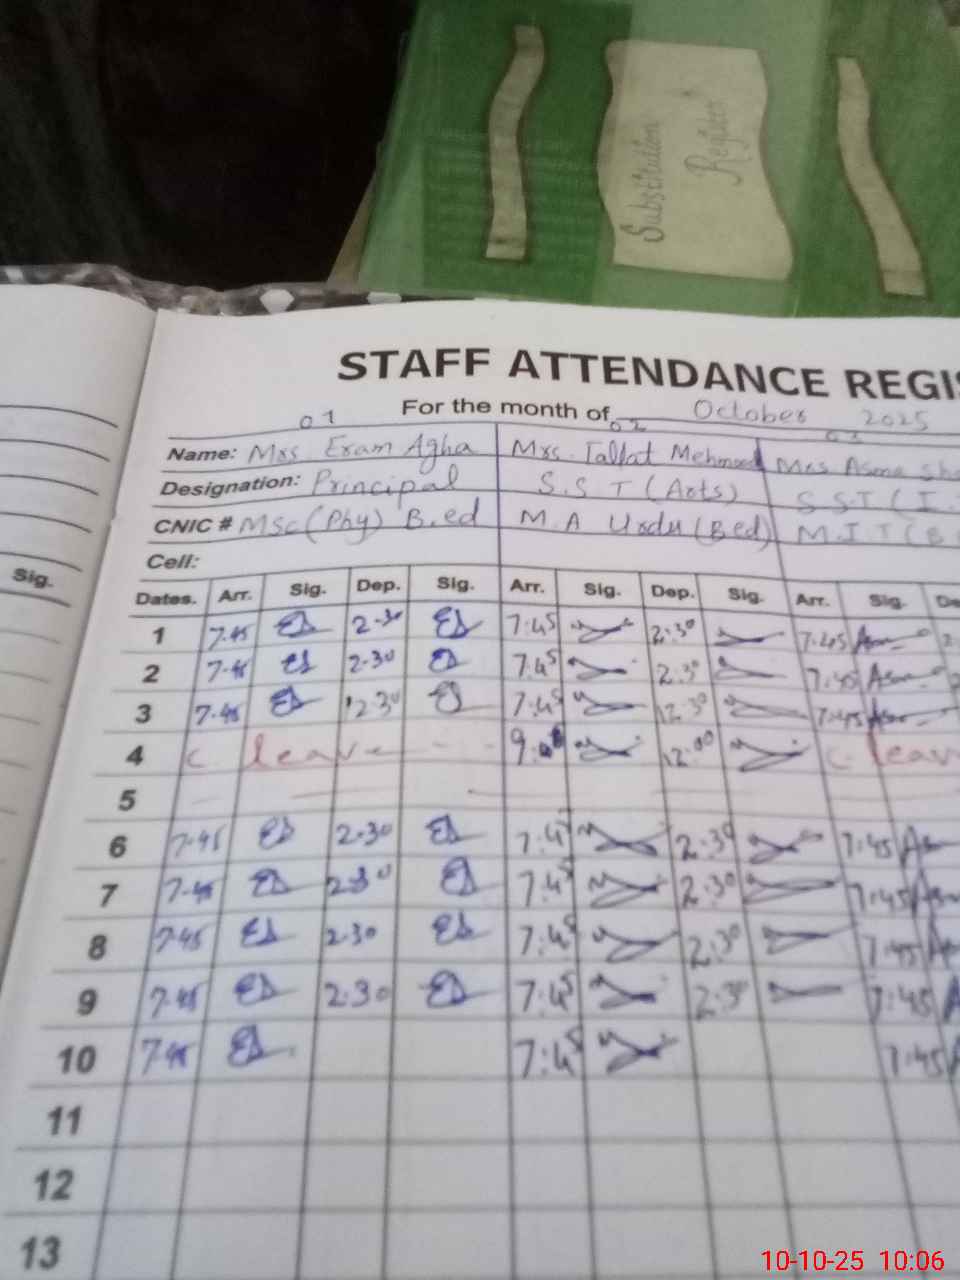 Substitution
Register
STAFF ATTENDANCE REGIS
For the month of October 2025
01 02 03
Name: Mrs. Eram Agha Mrs. Tallat Mehmood Mrs Asma Sha
Designation: Principal S.S T (Arts) S S.T ( I.
CNIC # MSc (Phy) B.ed M.A Urdu (B.ed) M.I T (B
Cell:
Sig.
Dates. Arr. Sig. Dep. Sig. Arr. Sig. Dep. Sig. Arr. Sig. De
1 7.45 2.30 7:45 2:30 7:45
2 7.45 2.30 7:45 2:30 7:45
3 7.45 12.30 7:45 12:30 7:45
4 C. leave 12:00 C. leav
5
6 7.45 2.30 7:45 2:30 7:45
7 7.45 2.30 7:45 2:30 7:45
8 7.45 2.30 7:45 2:30 7:45
9 7.45 2.30 7:45 2:30 7:45
10 7.45 7:45 7:45
11
12
13
10-10-25 10:06